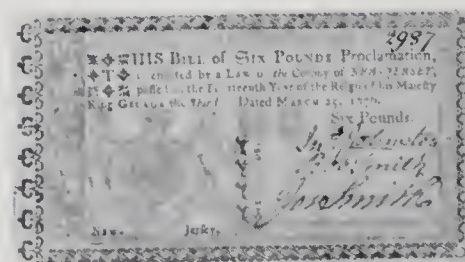 2987
THIS BILL of SIX POUNDS Proclamation,
is emitted by a LAW of the Colony of NEW-JERSEY,
passed in the Fourteenth Year of the Reign of his Majesty
King GEORGE the Third. Dated MARCH 25, 1776.
Six Pounds.
Smith
Smith
New- Jersey,